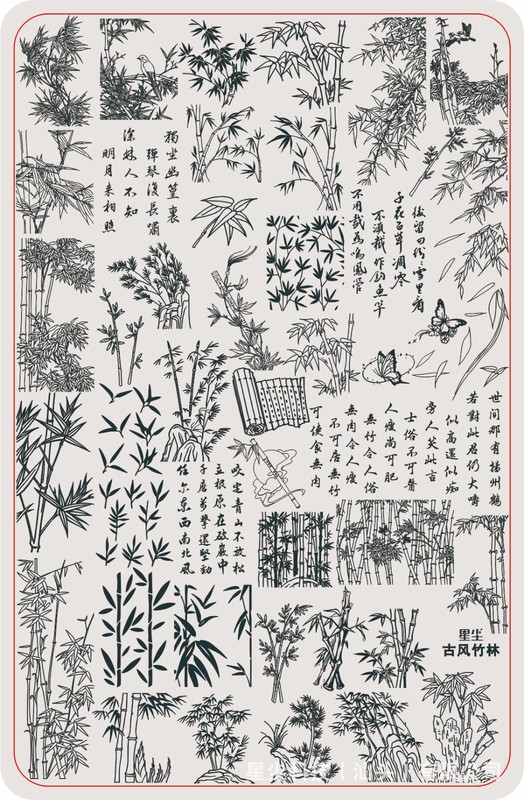 獨坐幽篁裏
彈琴復長嘯
深林人不知
明月来相照
不用裁為鳴鳳管
不須裁作釣魚竿
千花百草凋零
後留向紛紛雪里看
可使食無肉
不可居無竹
無肉令人瘦
無竹令人俗
人瘦尚可肥
士俗不可醫
旁人笑此言
似高還似痴
若對此君仍大嚼
世间那有揚州鶴
咬定青山不放松
立根原在破巖中
千磨萬擊還堅勁
任尔東西南北風
星尘
古风竹林